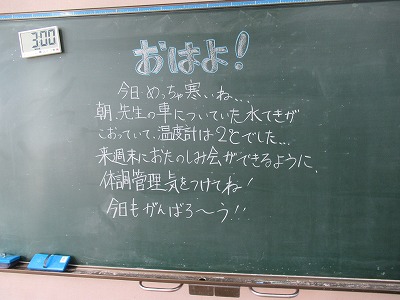 3:00
おはよ!
今日めっちゃ寒いね...
朝、先生の車についていた水てきが
こおっていて、温度計は2℃でした...
来週末におたのしみ会ができるように、
体調管理気をつけてね!
今日もがんばろ〜う!!